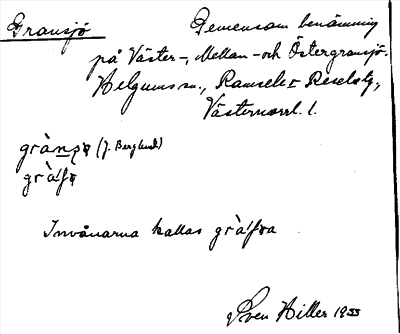 Gransjö
Gemensam benämning
på Väster-, Mellan- och Östergransjö.
Helgums sn., Ramsele o Reseletg.,
Västernorrl. l.
(J. Berglund)
Invånarna kallas
Sven Hiller 1933